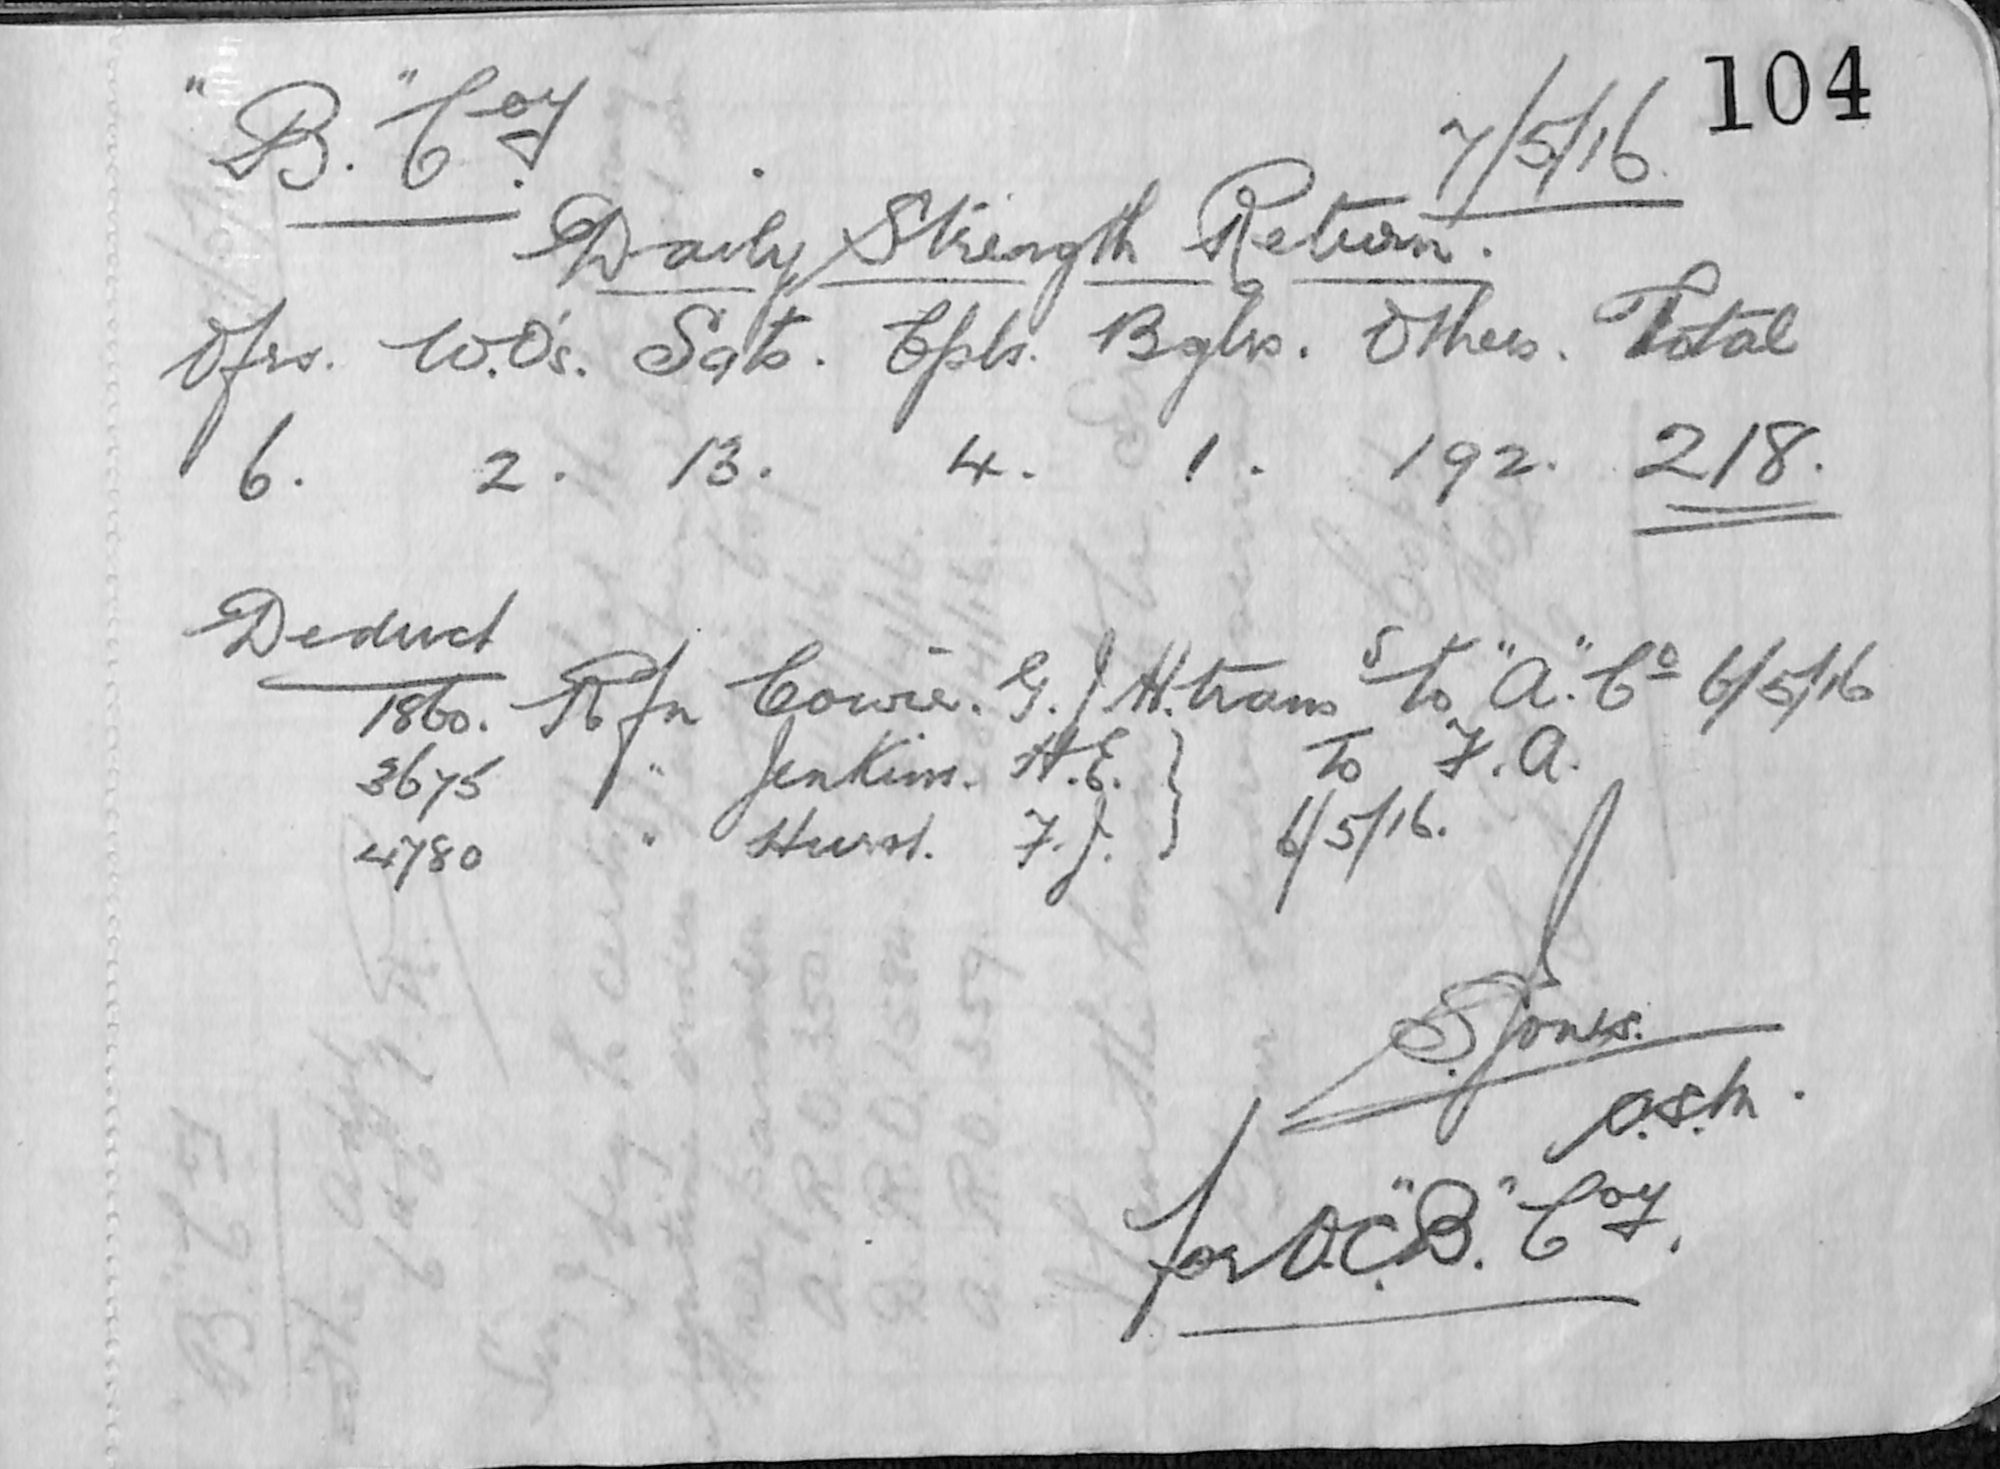 104
"B." Coy. 7/5/16
Daily Strength Return.
Ofrs. W.O's. Sgts. Cpls. Bglrs. Others. Total
6. 2. 13. 4. 1. 192. 218.
Deduct
1860. Rfn Cowie. G. J H. trans to "A." Co 6/5/16
3675 " Jenkins. H.E. } To F.A.
4780 " Hurst. F.J. } 6/5/16.
S. Jones.
C.S.M.
for O.C. "B." Coy.